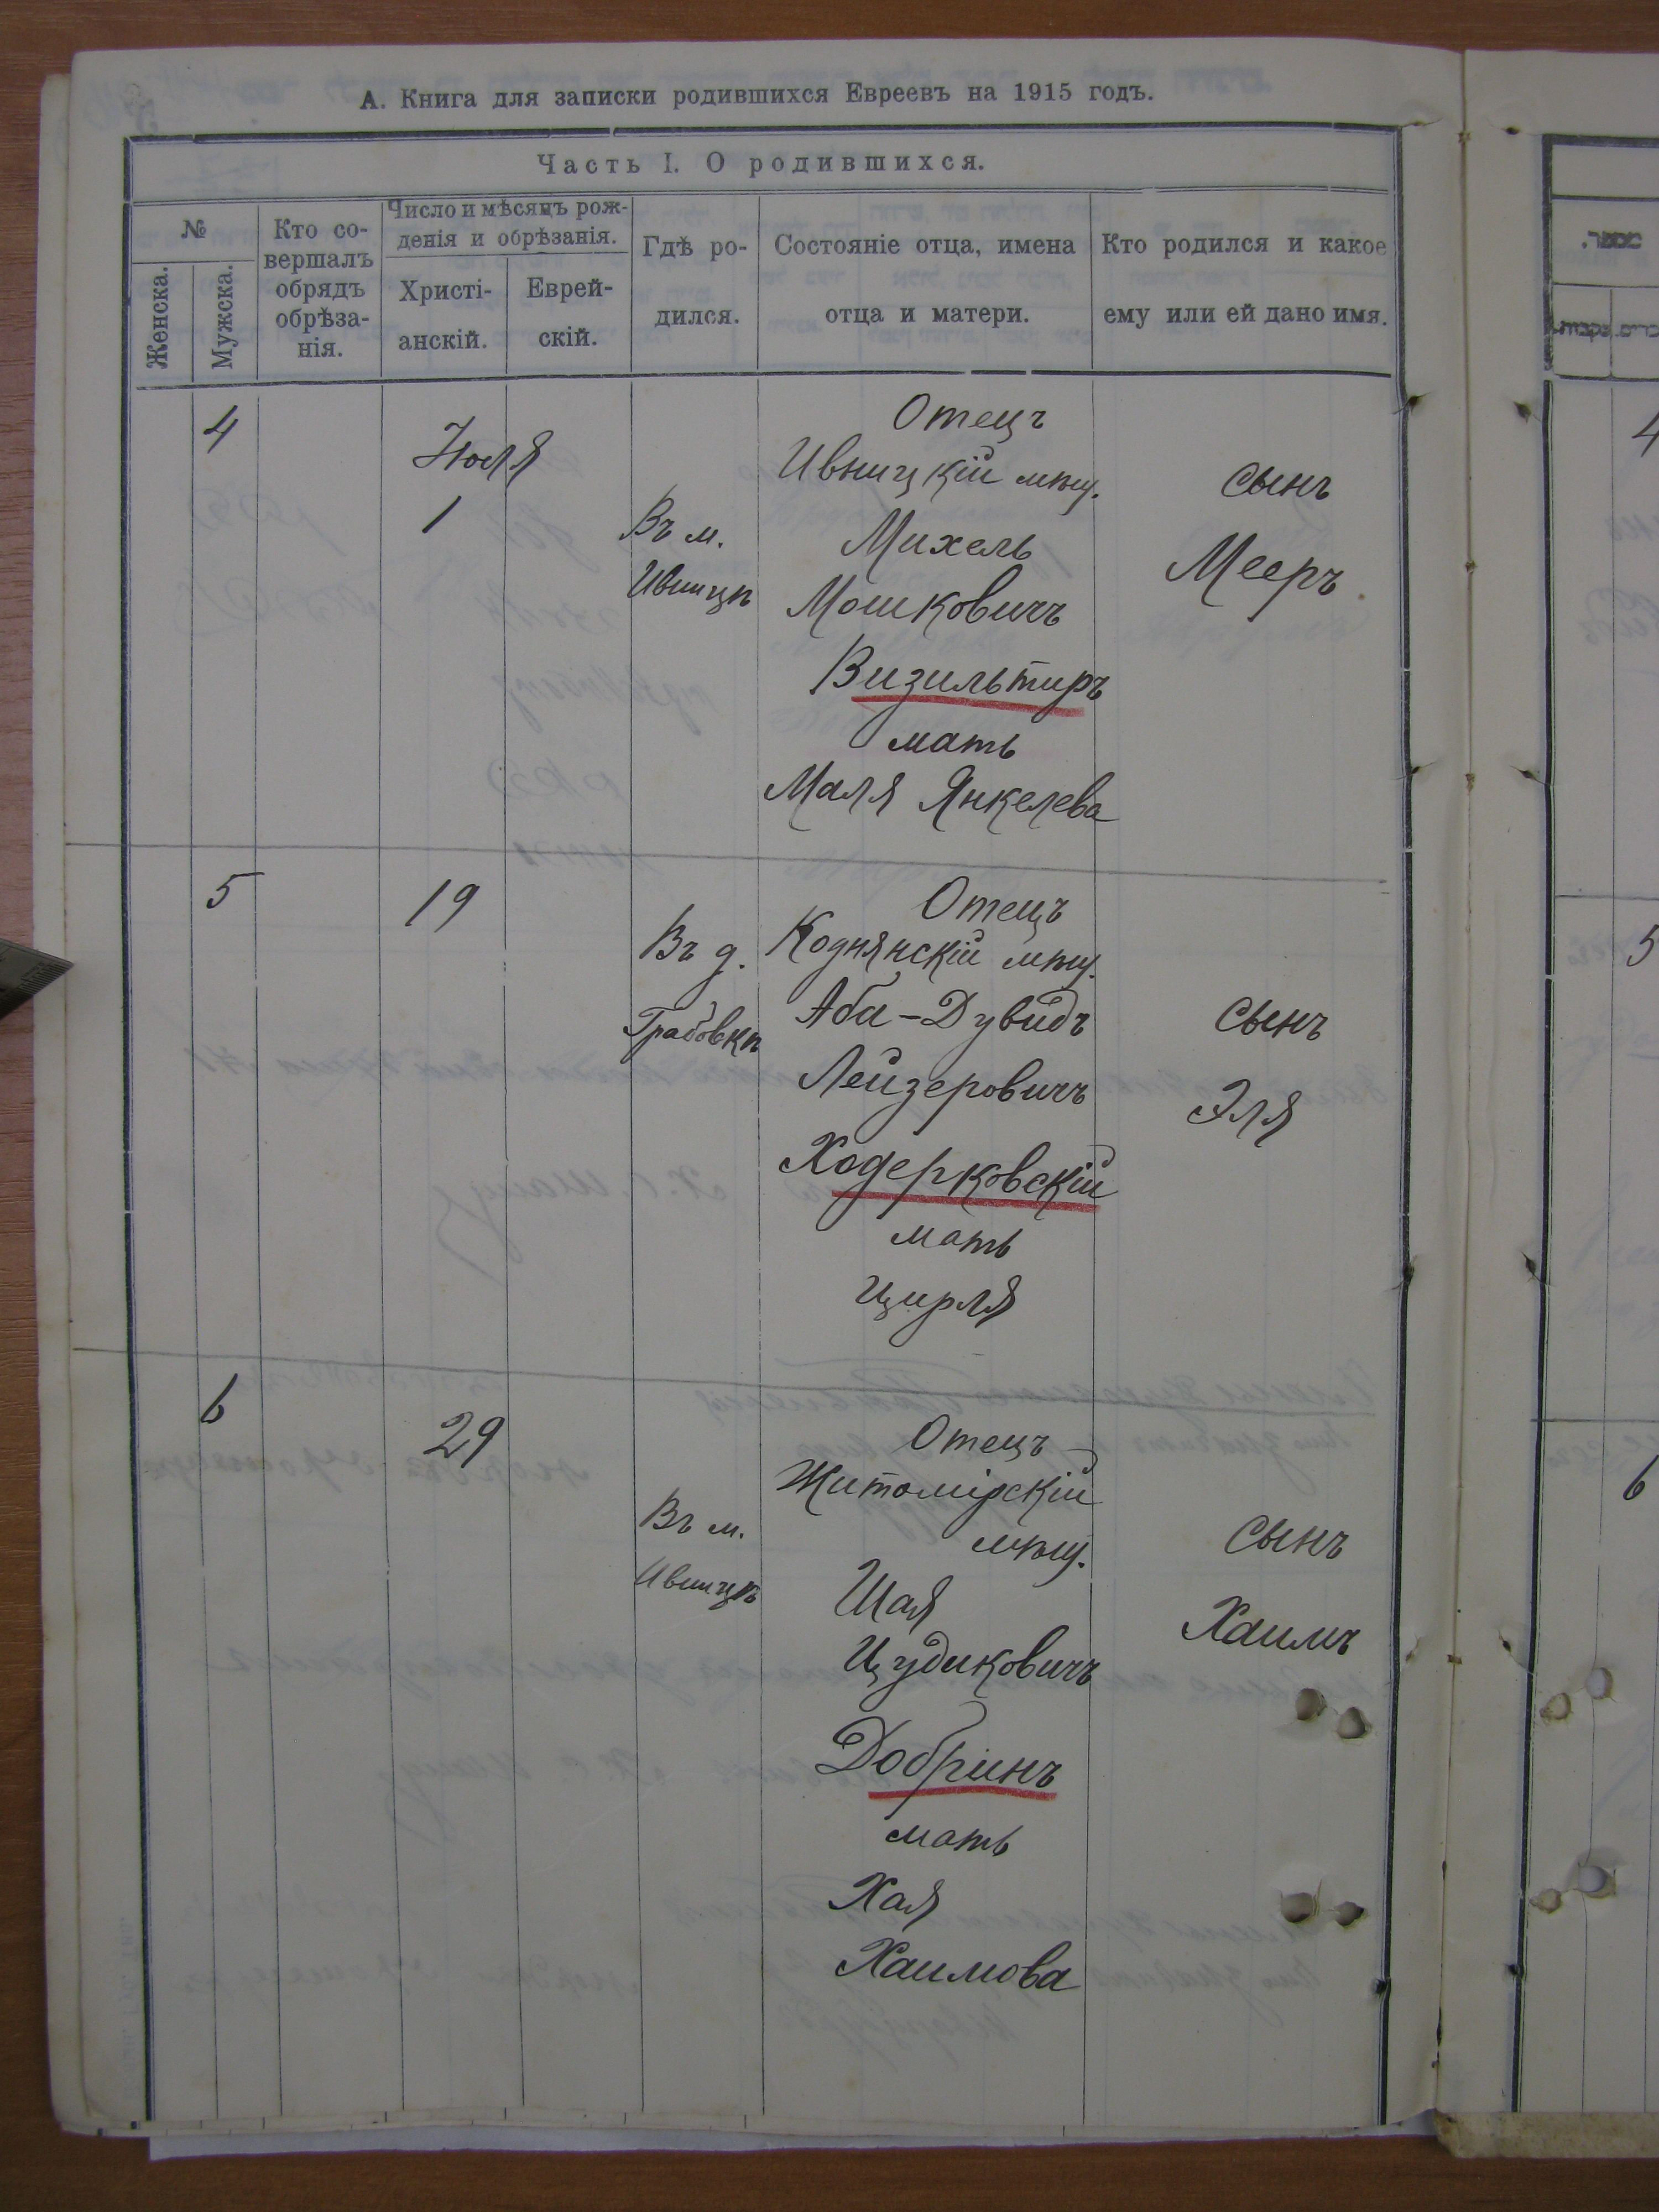 А. Книга для записки родившихся Евреевъ на 1915 годъ.
Часть I. О родившихся.
№
Женска.
Мужска.
Кто со-
вершалъ
обрядъ
обрѣза-
нія.
Число и мѣсяцъ рож-
денія и обрѣзанія.
Христі-
анскій.
Еврей-
скій.
Гдѣ ро-
дился.
Состояніе отца, имена
отца и матери.
Кто родился и какое
ему или ей дано имя.
4
Іюля
1
Въ м.
Ивницѣ
Отецъ
Ивницкій мѣщ.
Михель
Мошковичъ
Визильтиръ
мать
Маля Янкелева
сынъ
Мееръ
5
19
Въ д.
Грабовкѣ
Отецъ
Коднянскій мѣщ.
Аба-Дувидъ
Лейзеровичъ
Ходерковскій
мать
Цирля
сынъ
Эля
6
29
Въ м.
Ивницѣ
Отецъ
Житомірскій
мѣщ.
Шая
Цудиковичъ
Добринъ
мать
Хая
Хаимова
сынъ
Хаимъ
4
5
6